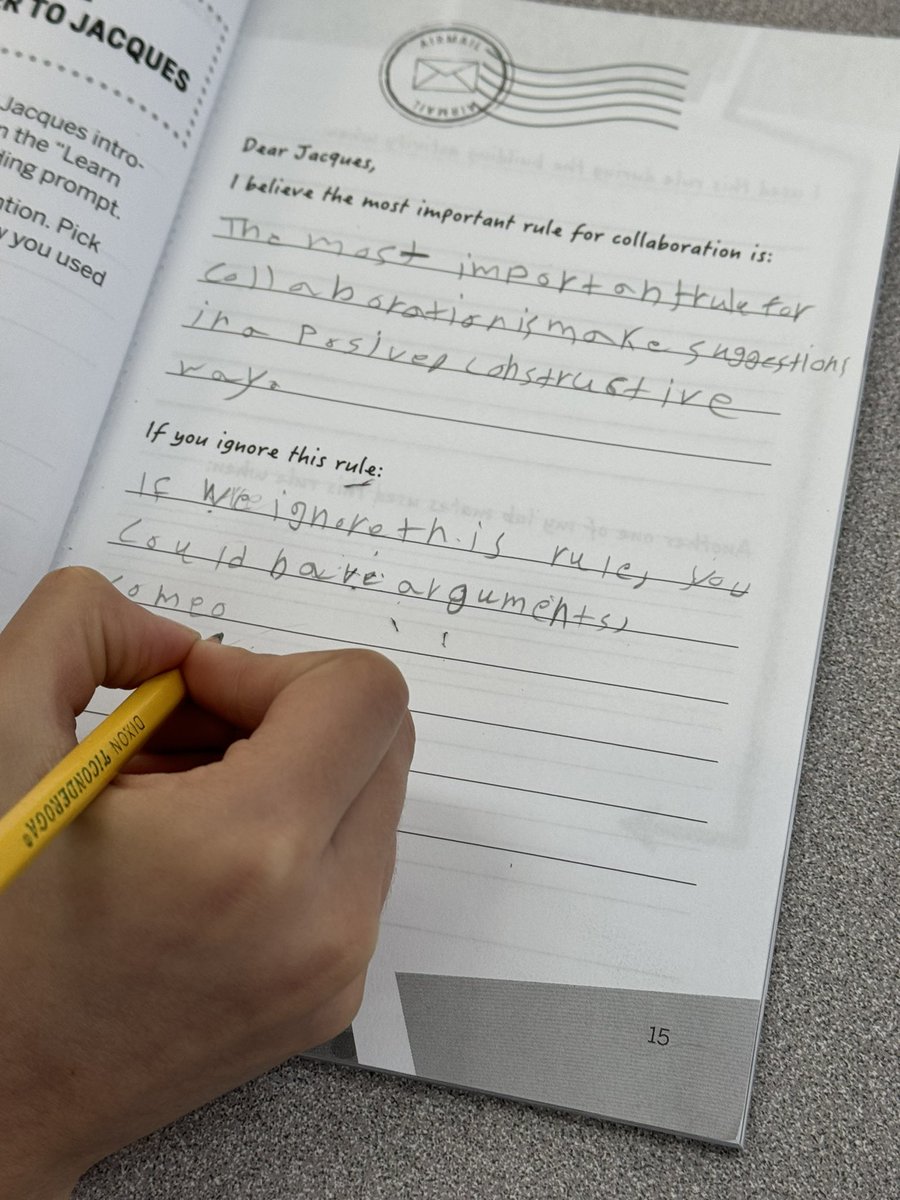 ER TO JACQUES
Jacques intro-
n the "Learn
ding prompt.
ntion. Pick
y you used
AIRMAIL
AIRMAIL
Dear Jacques,
I believe the most important rule for collaboration is:
The most important rule for
collaboration is make suggestions
in a Posivep constructive
way.
If you ignore this rule:
If we ignore this rule, you
Could have arguments,
Someo
DIXON TICONDEROGA®
15